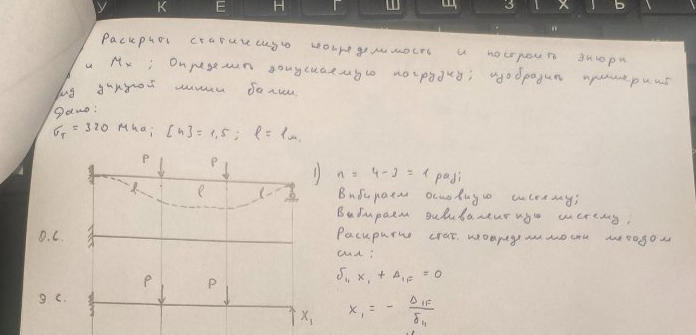 У К Е Н Г Ш Щ З Х Ъ
Раскрыть статическую неопределимость и построить эпюры
и Mx ; Определить допускаемую нагрузку; изобразить примерный
вид упругой линии балки.
Дано:
σт = 320 МПа; [n] = 1,5; l = 1м.
P P
l l l
1) n = 4-3 = 1 раз;
Выбираем основную систему;
Выбираем эквивалентную систему;
Раскрытие стат. неопределимости методом
сил:
О.С.
δ11 X1 + Δ1F = 0
P P
Э С.
X1 = - Δ1F / δ11
X1